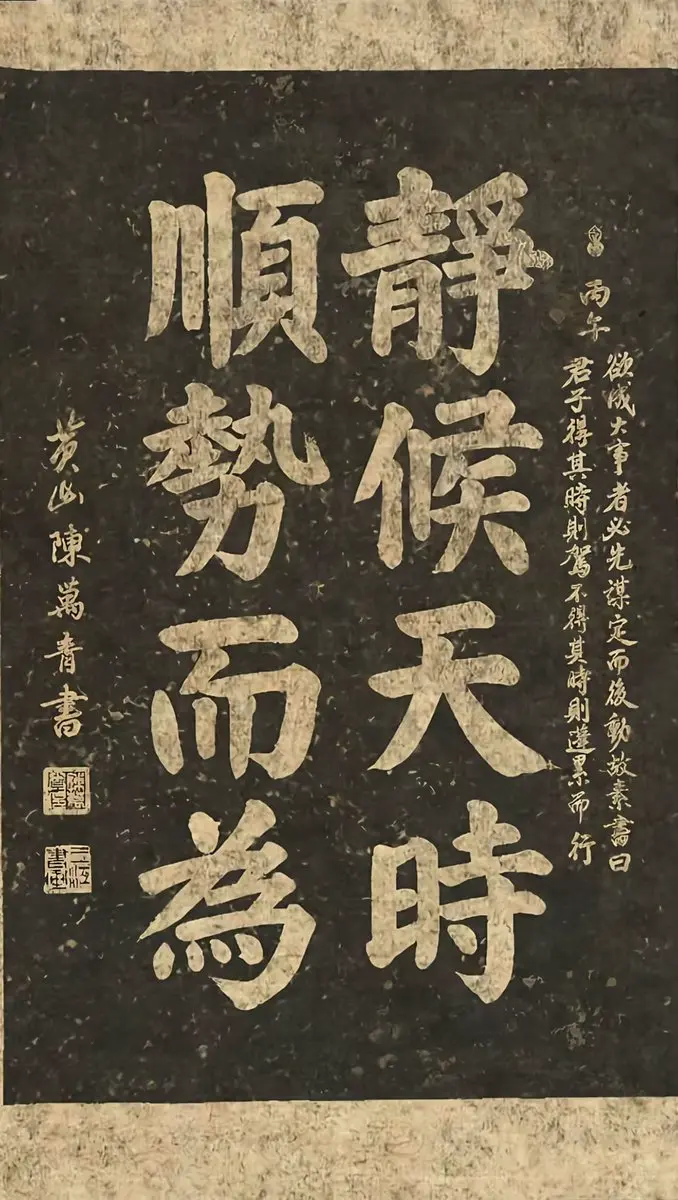 丙午
欲成大事者必先謀定而後動故素書曰
君子得其時則駕不得其時則蓬累而行
靜候天時
順勢而為
黃山陳萬青書